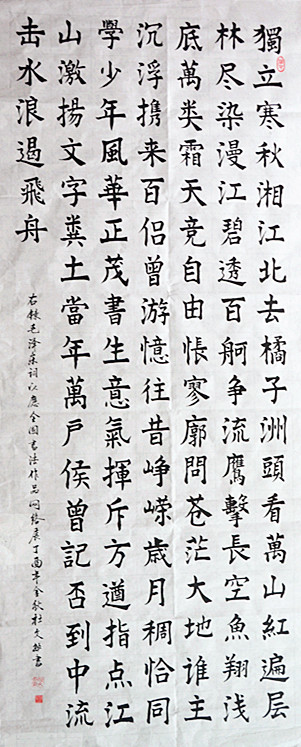 獨立寒秋湘江北去橘子洲頭看萬山紅遍层
林尽染漫江碧透百舸争流鷹擊長空魚翔浅
底萬类霜天竞自由悵寥廓問苍茫大地谁主
沉浮携来百侣曾游憶往昔峥嵘歲月稠恰同
學少年風華正茂書生意氣揮斥方遒指点江
山激揚文字糞土當年萬户侯曾記否到中流
击水浪遏飛舟
右録毛泽东词以應全国書法作品网络展丁酉年金秋杜文書